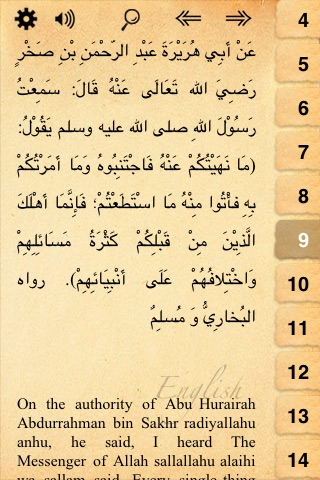 عَنْ أَبِي هُرَيْرَةَ عَبْدِ الرَّحْمَنِ بْنِ صَخْرٍ
رَضِيَ الله تَعَالَى عَنْهُ قَالَ: سَمِعْتُ
رَسُوْلَ اللهِ صلى الله عليه وسلم يَقُوْلُ:
(مَا نَهَيْتُكُمْ عَنْهُ فَاجْتَنِبُوهُ وَمَا أَمَرْتُكُمْ
بِهِ فأْتُوا مِنْهُ مَا اسْتَطَعْتُمْ؛ فَإِنَّمَا أَهْلَكَ
الَّذِيْنَ مِنْ قَبْلِكُمْ كَثْرَةُ مَسَائِلِهِمْ
وَاخْتِلافُهُمْ عَلَى أَنْبِيَائِهِمْ). رواه
البُخارِيُّ وَ مُسلِمٌ
English
On the authority of Abu Hurairah
Abdurrahman bin Sakhr radiyallahu
anhu, he said, I heard The
Messenger of Allah sallallahu alaihi
wa sallam said, Every single thing
4
5
6
7
8
9
10
11
12
13
14